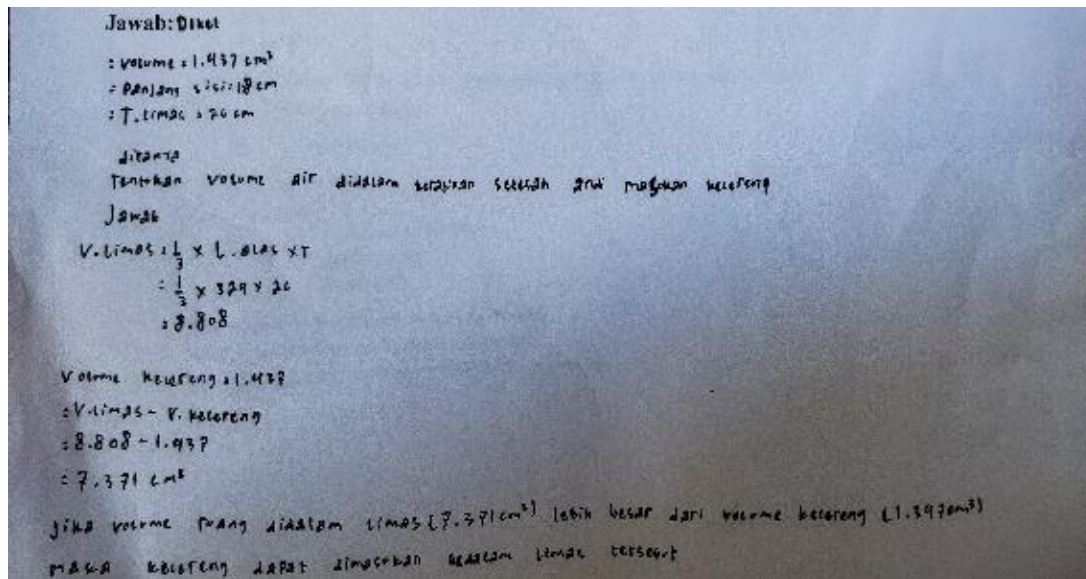 Jawab: Diket
: volume : 1.437 cm³
: Panjang sisi : 18 cm
: T. limas : 26 cm
ditanya
Tentukan volume air didalam setelah andi masukan kelereng
Jawab
V. limas : 1/3 x L. alas x T
: 1/3 x 324 x 26
: 8.808
Volume kelereng : 1.437
: V. limas - V. kelereng
: 8.808 - 1.437
: 7.371 cm³
Jika volume ruang didalam limas (7.371 cm³) lebih besar dari volume kelereng (1.397 cm³)
maka kelereng dapat dimasukan kedalam limas tersebut